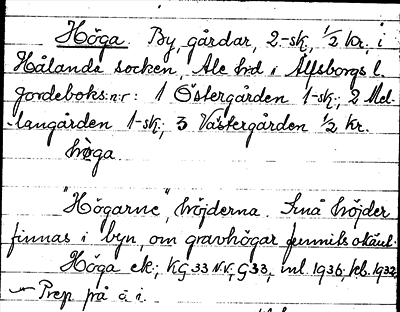 Höga. By, gårdar, 2-sk, 1/2 kr. i
Hålanda socken, Ale hd i Älfsborgs l.
jordeboks:nr: 1 Östergården 1-sk; 2 Mel-
langården 1-sk; 3 Västergården 1/2 kr.
höga.
"Högarne", höjderna. Små höjder
finnas i byn, om gravhögar funnits okänt.
Höga ek.; KG33 N.V.; G33,
Prep på ä i.